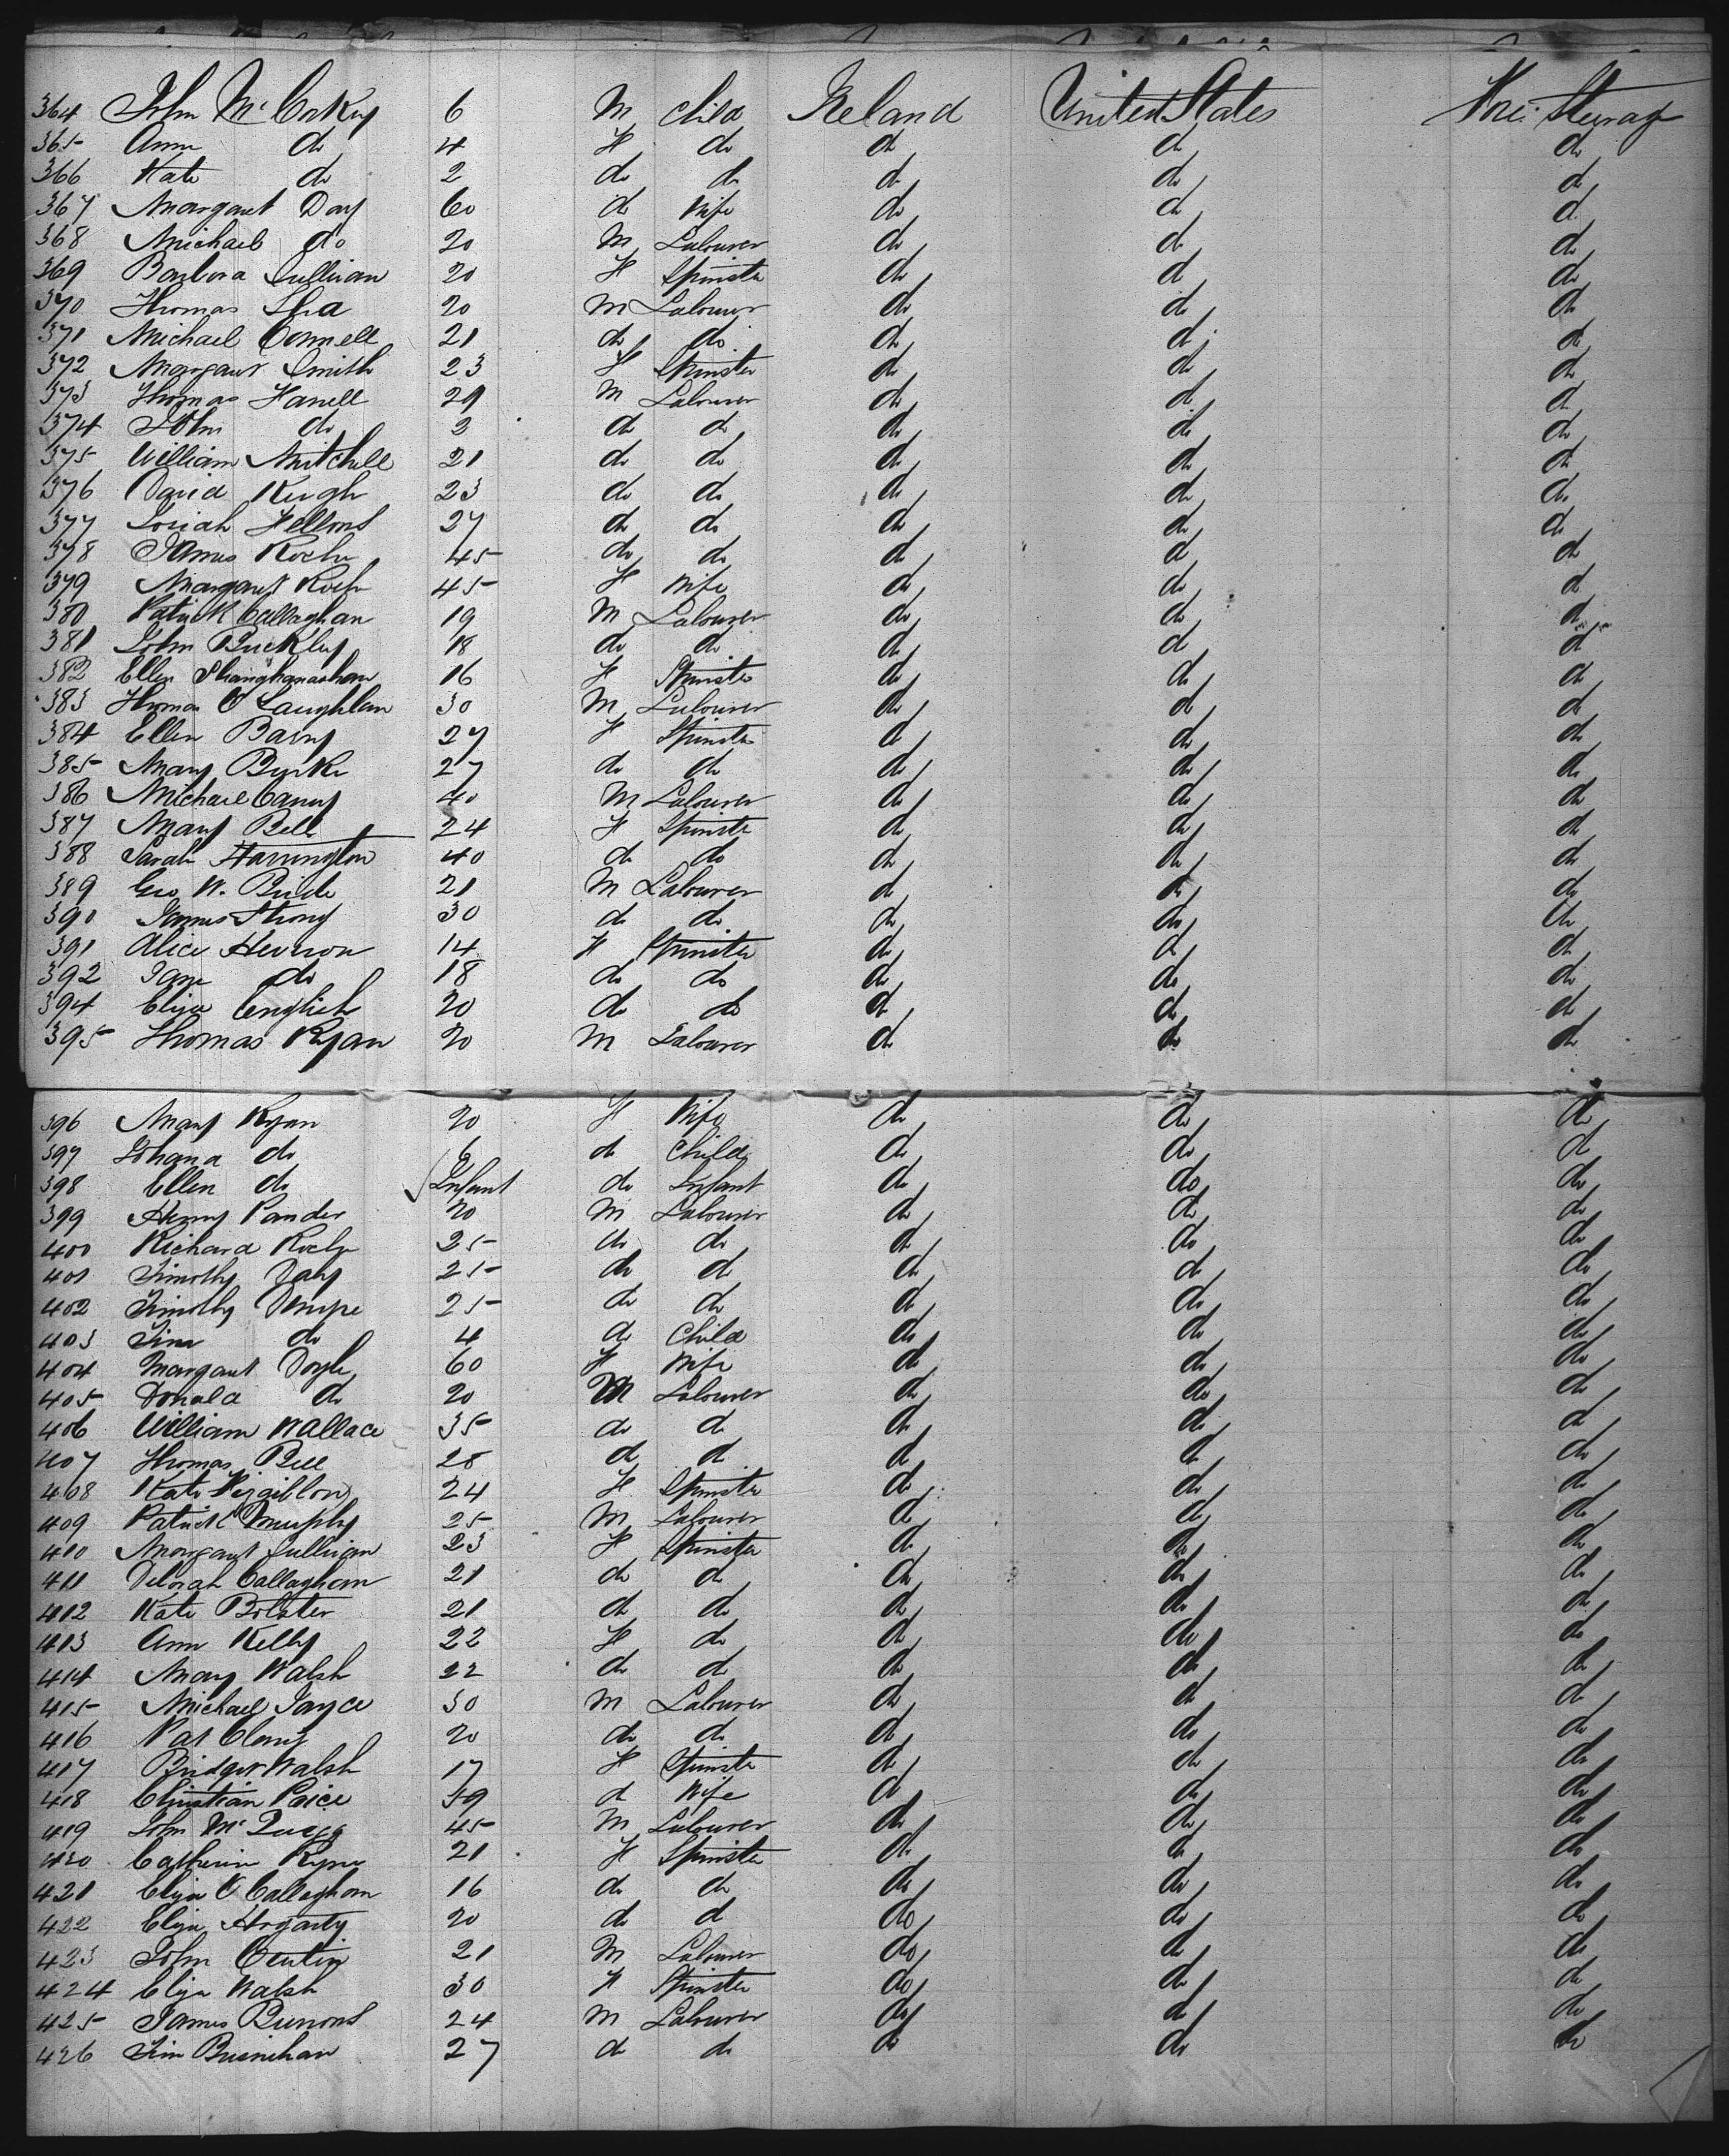 364 John Mc Corky 6 M Child Ireland United States Fore Steerag
365 Ann do 4 F do do do do
366 Kate do 2 do do do do do
367 Margaret Day 60 do Wife do do do
368 Michael do 20 M Labourer do do do
369 Barbora Sullivan 20 F Spinster do do do
370 Thomas Shea 20 M Labourer do do do
371 Michael Connell 21 do do do do do
372 Margaret Smith 23 F Spinster do do do
373 Thomas Harrell 29 M Labourer do do do
374 John do 3 do do do do do
375 William Mitchell 21 do do do do do
376 David Keugh 23 do do do do do
377 Josiah Hellons 27 do do do do do
378 James Roche 45 do do do do do
379 Margaret Roche 45 F Wife do do do
380 Patrick Callaghan 19 M Labourer do do do
381 John Buckley 18 do do do do do
382 Ellen 16 F Spinster do do do
383 Thomas O'Laughlan 30 M Labourer do do do
384 Ellen Barry 27 F Spinster do do do
385 Mary Burke 27 do do do do do
386 Michael Canny 40 M Labourer do do do
387 Mary Bell 24 F Spinster do do do
388 Sarah Harrington 40 do do do do do
389 Geo W. Birde 21 M Labourer do do do
390 James Strong 30 do do do do do
391 Alice Hevron 14 F Spinster do do do
392 Jane do 18 do do do do do
394 Eliza English 20 do do do do do
395 Thomas Ryan 20 M Labourer do do do
396 Mary Ryan 20 F Wife do do do
397 Johana do 6 do Child do do do
398 Ellen do Infant do Infant do do do
399 Henry Pander 20 M Labourer do do do
400 Richard Roche 25 do do do do do
401 Timothy Daly 25 do do do do do
402 Timothy Dempse 25 do do do do do
403 Tim do 4 do Child do do do
404 Margaret Doyle 60 F Wife do do do
405 Donald do 20 M Labourer do do do
406 William Wallace 35 do do do do do
407 Thomas Bell 28 do do do do do
408 Kate Fizgibbon 24 F Spinster do do do
409 Patrick Murphy 25 M Labourer do do do
410 Margaret Sullivan 23 F Spinster do do do
411 Deborah Callaghan 21 do do do do do
412 Kate Bolster 21 do do do do do
413 Ann Kelly 22 F do do do do
414 Mary Walsh 22 do do do do do
415 Michael Jayce 30 M Labourer do do do
416 Pat Clary 20 do do do do do
417 Bridget Walsh 17 F Spinster do do do
418 Christian Paice 59 do Wife do do do
419 John Mc 45 M Labourer do do do
420 Catherine Ryne 21 F Spinster do do do
421 Eliza O'Callaghan 16 do do do do do
422 Eliza Hogarty 20 do do do do do
423 John 21 M Labourer do do do
424 Eliza Walsh 30 F Spinster do do do
425 James Burrons 24 M Labourer do do do
426 Tim Brinihan 27 do do do do do